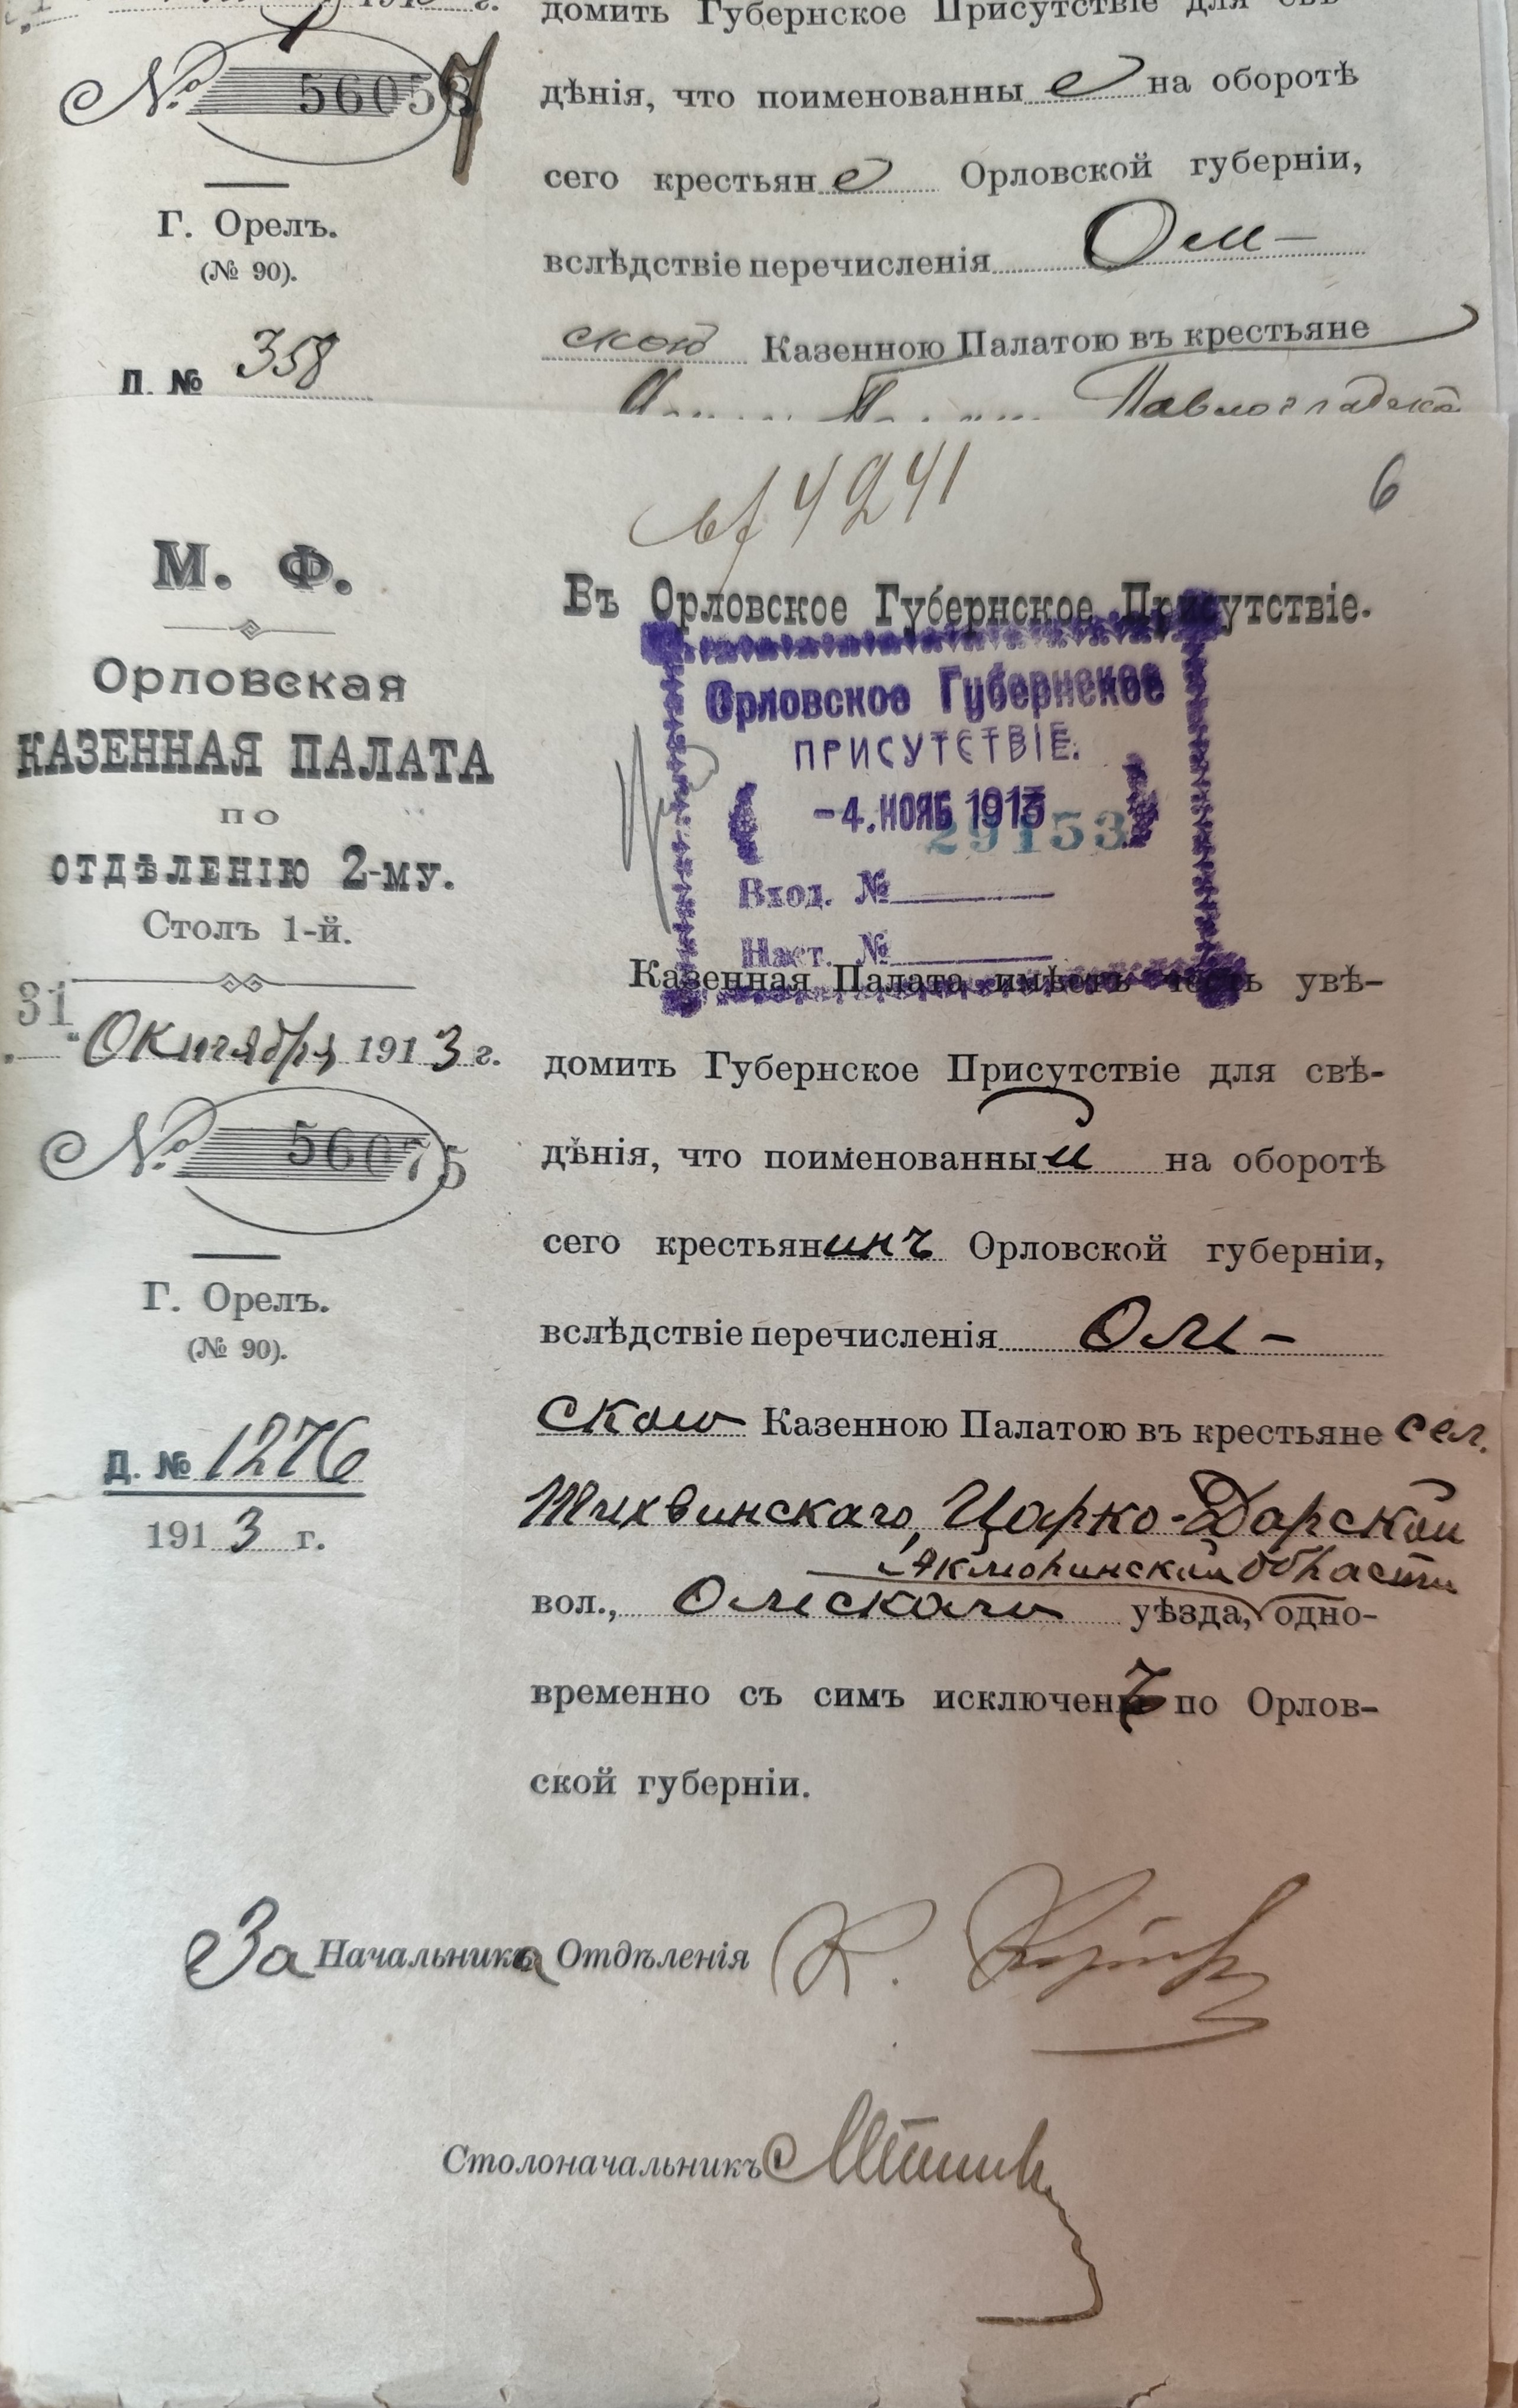 домить Губернское Присутствіе для свѣ-
№ 56058
дѣнія, что поименованны е на оборотѣ
сего крестьян е Орловской губерніи,
Г. Орелъ.
(№ 90).
вслѣдствіе перечисленія Ом-
ской Казенною Палатою въ крестьяне
П. № 358
Павлоградской
№ 4241
6
М. Ф.
Орловская
КАЗЕННАЯ ПАЛАТА
по
ОТДѢЛЕНІЮ 2-му.
Столъ 1-й.
31 Октября 1913 г.
№ 56075
Г. Орелъ.
(№ 90).
Д. № 1276
1913 г.
Въ Орловское Губернское Присутствіе.
Орловское Губернское
ПРИСУТСТВІЕ.
-4. НОЯБ 1913
29153
Вход. №
Наст. №
Казенная Палата имѣетъ честь увѣ-
домить Губернское Присутствіе для свѣ-
дѣнія, что поименованный на оборотѣ
сего крестьянинъ Орловской губерніи,
вслѣдствіе перечисленія Ом-
скою Казенною Палатою въ крестьяне сел.
Тихвинскаго, Царко-Дарской
Акмолинской области
вол., Омскаго уѣзда, одно-
временно съ симъ исключенъ по Орлов-
ской губерніи.
За Начальника Отдѣленія К.
Столоначальникъ